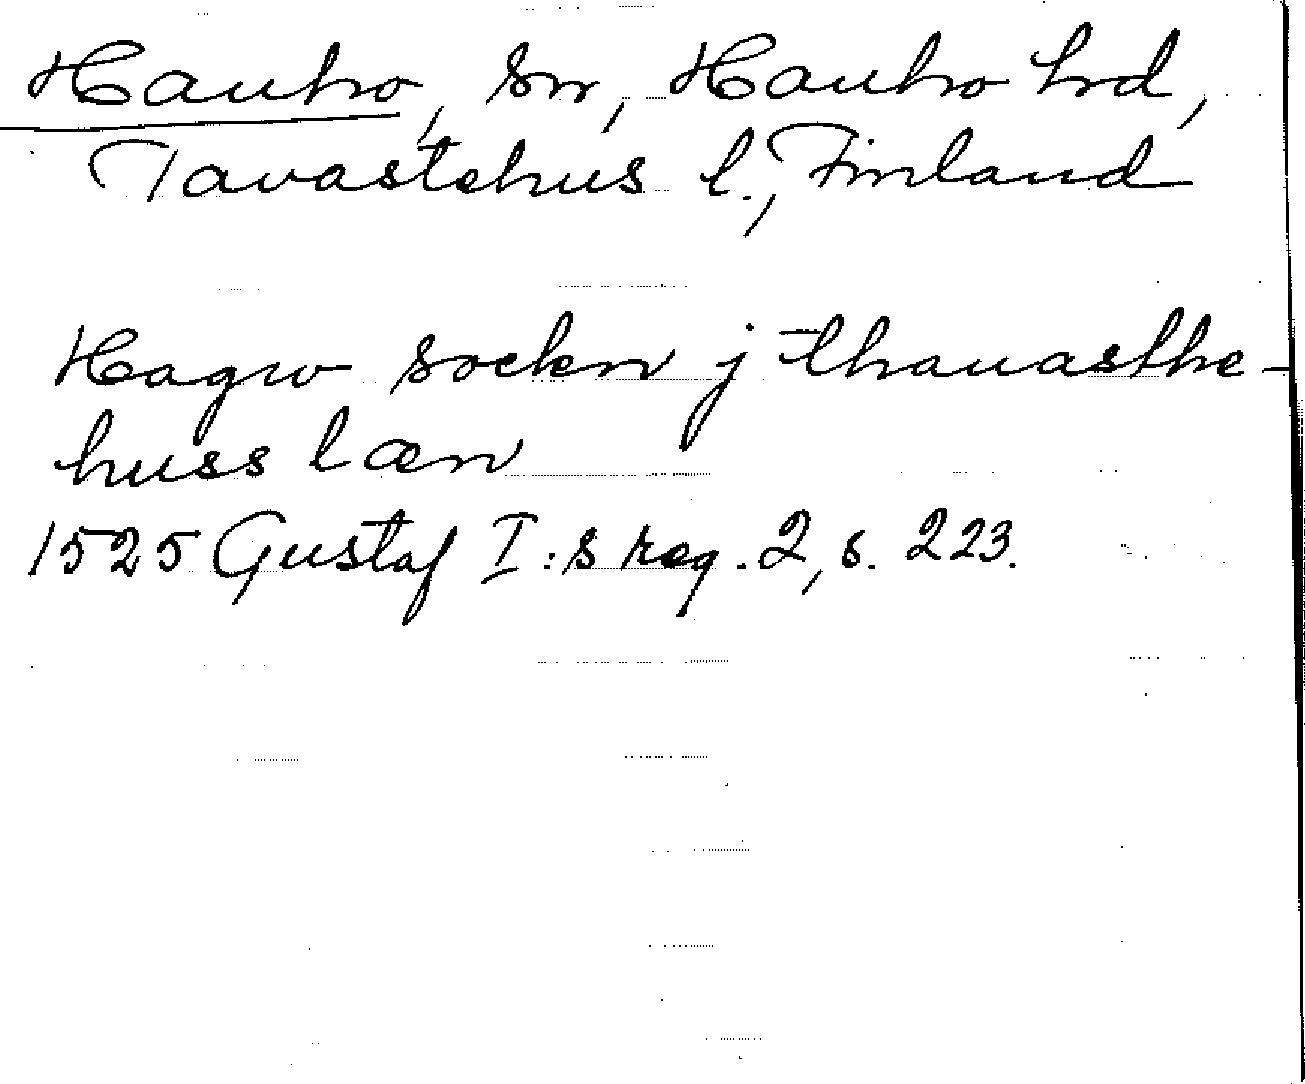 Hauho, sn, Hauho hrd,
Tavastehus l., Finland
Hagw sockn j thauasthe-
huss læn
1525 Gustaf I:s reg. 2, s. 223.